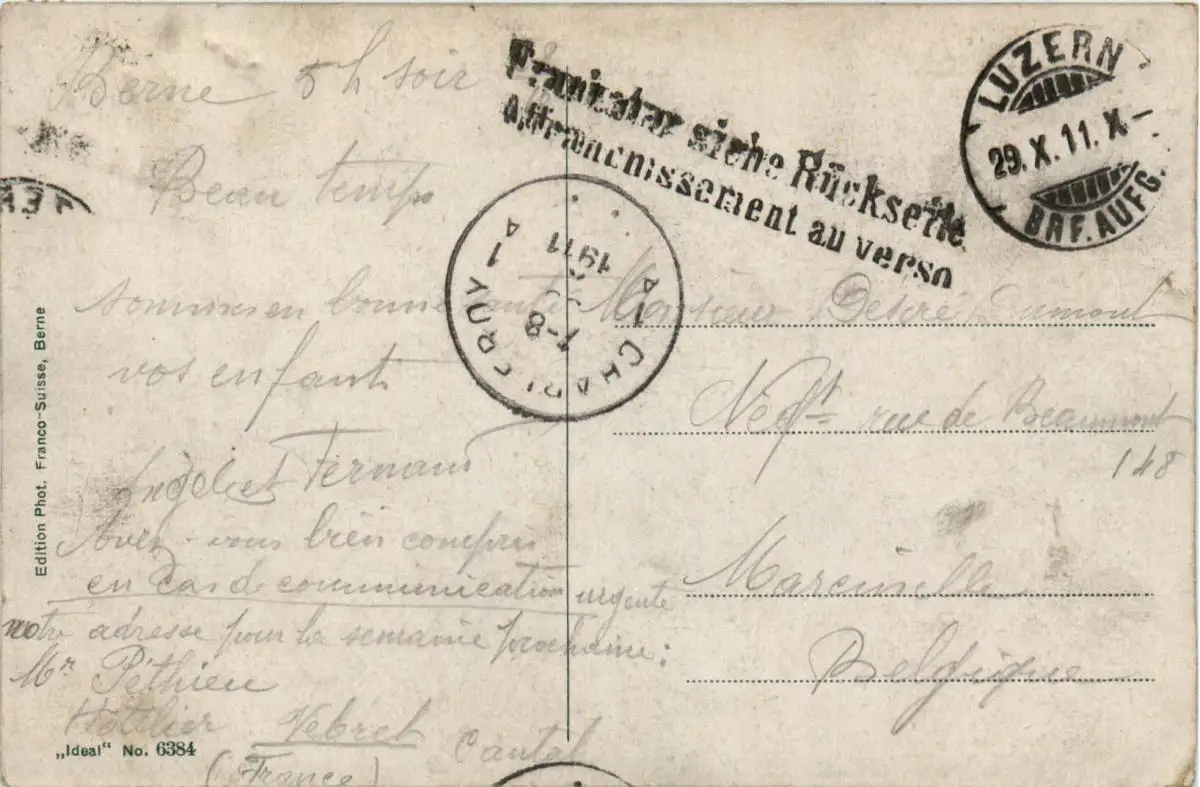 Berne 5 h soir
Beau temps
sommes en bonne santé
vos enfant
Fernand
Avez-vous bien compris
en cas de communication urgente
notre adresse pour la semaine prochaine :
Mr Péthieu
Hôtelier Vebret Cantal
(France)
Frankatur siehe Rückseite
Affranchissement au verso
LUZERN
29.X.11.X-
BRF. AUFG.
CHARLEROY 1
1A
A
7-8
1911
Monsieur Désiré Dumont
Négt rue de Beaumont
148
Marcinelle
Belgique
Edition Phot. Franco-Suisse, Berne
„Ideal" No. 6384